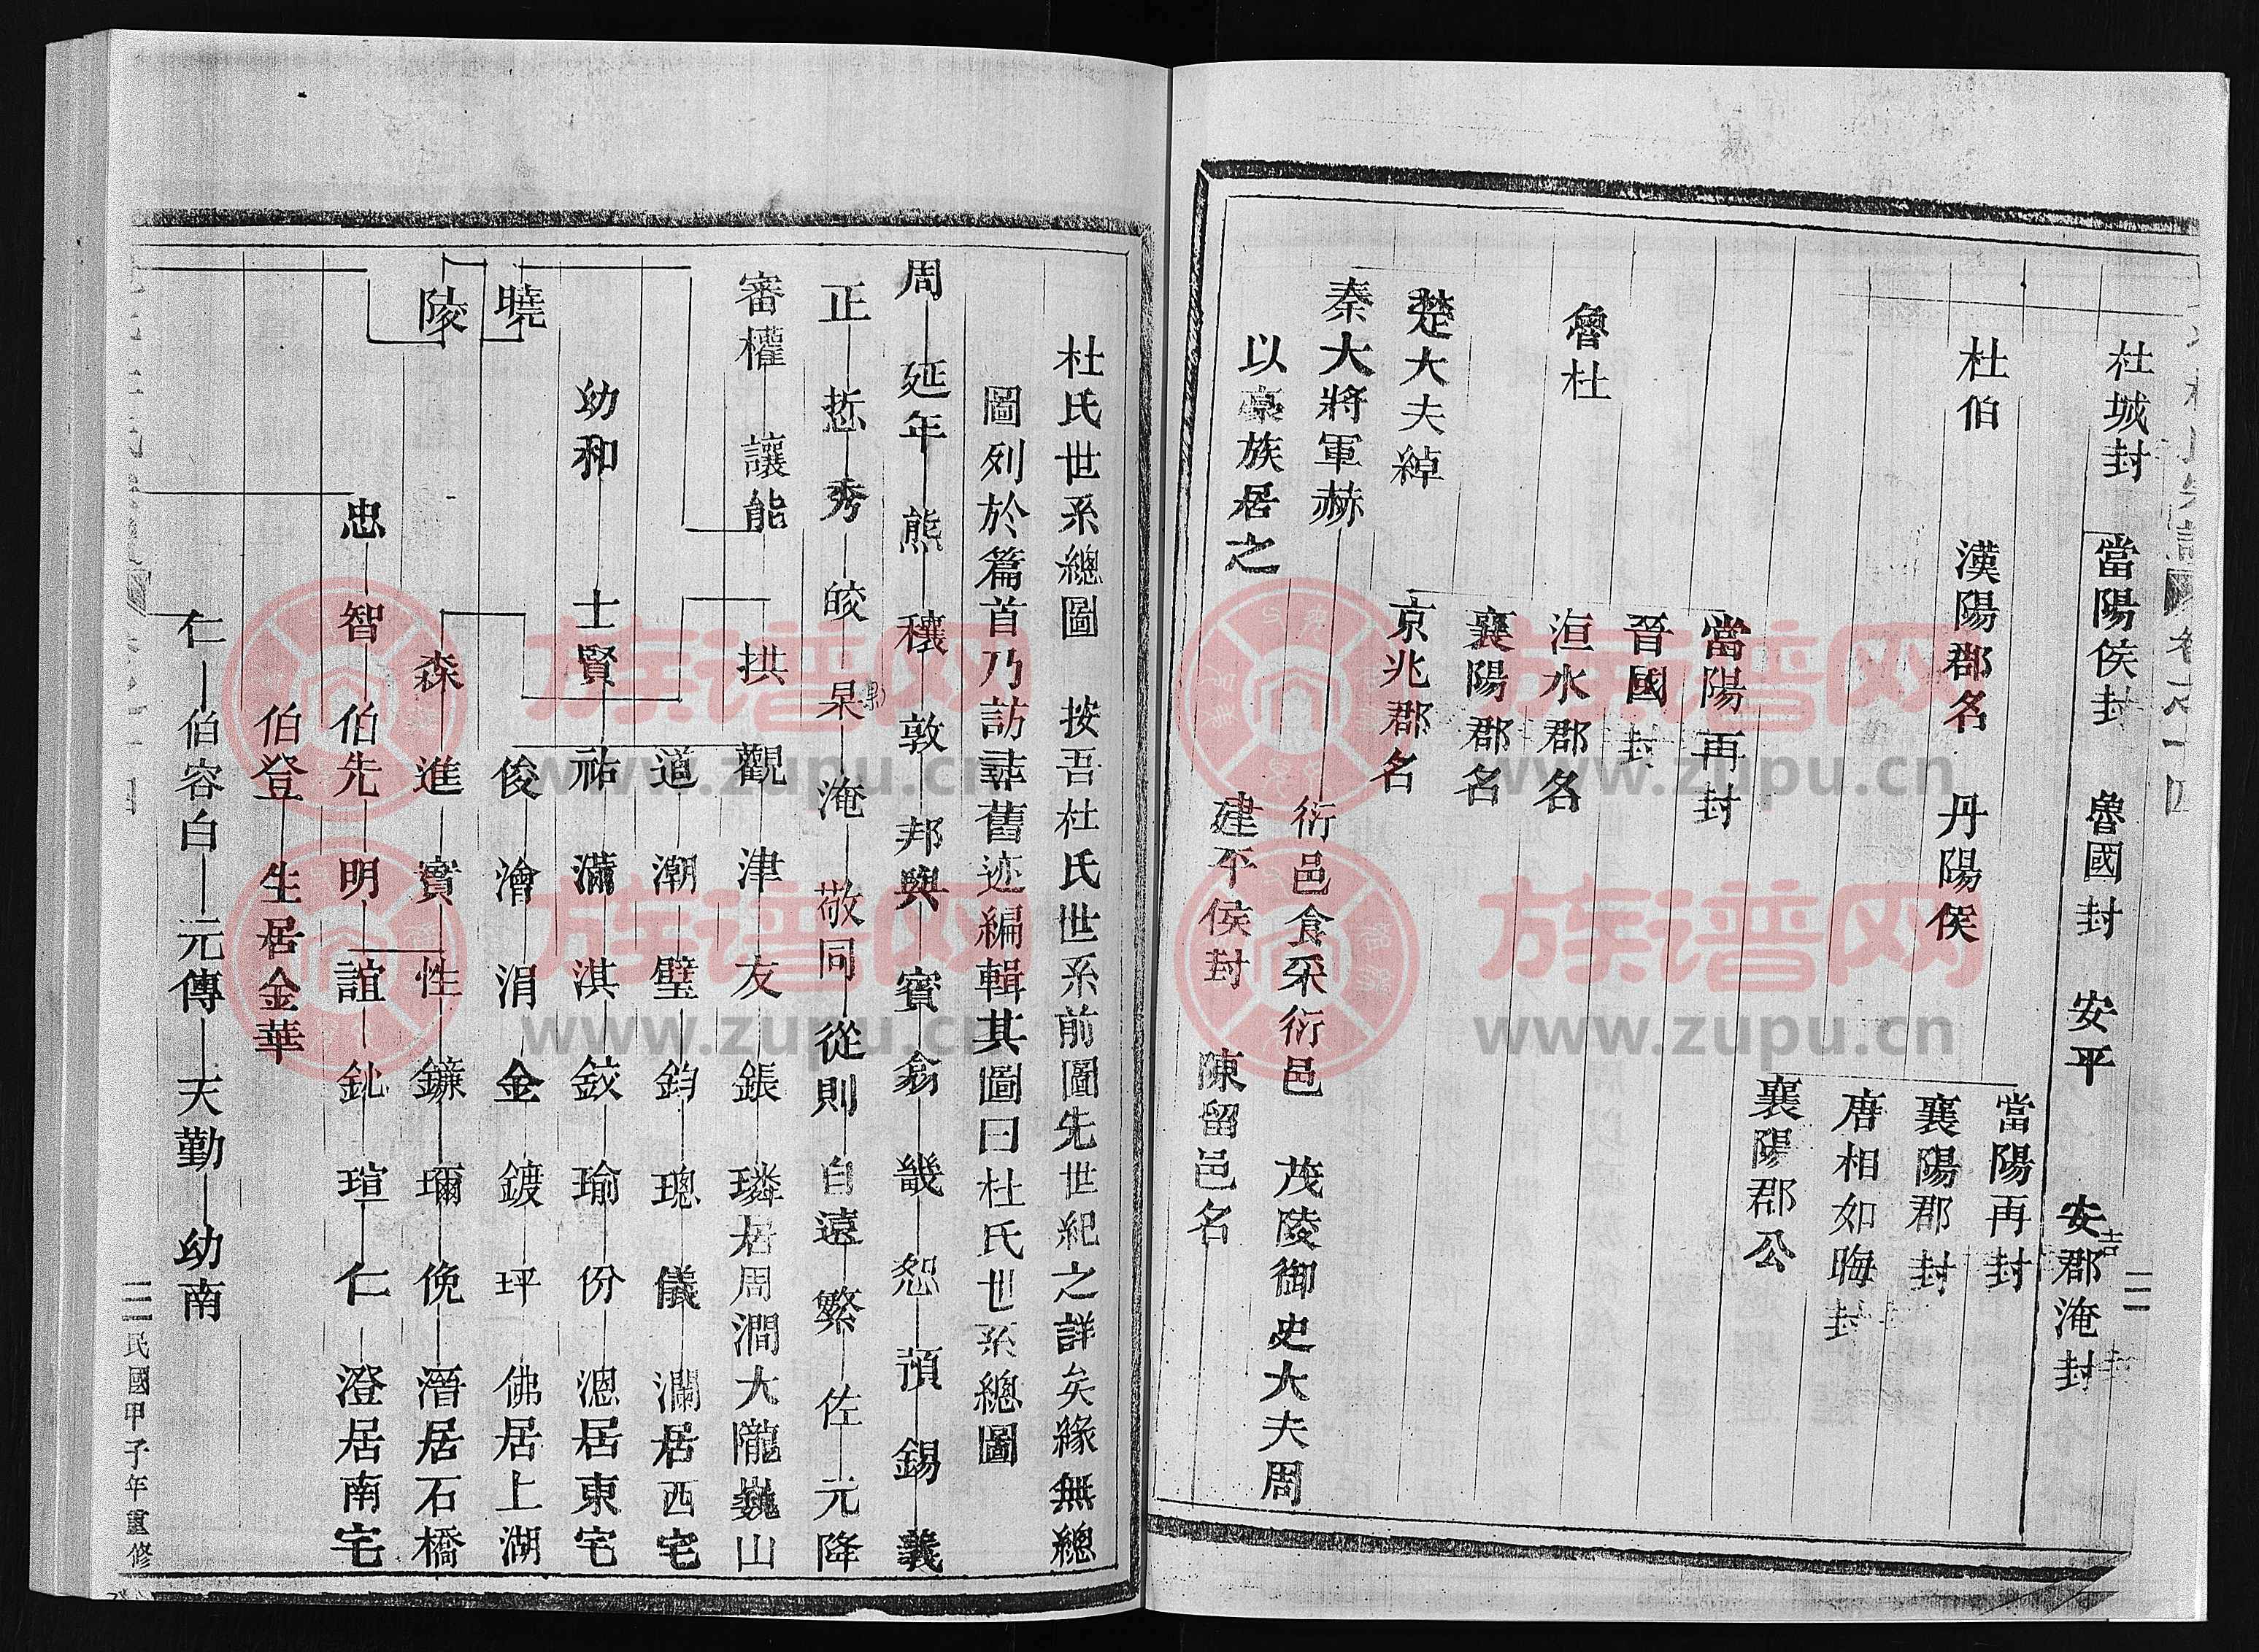 杜城封　當陽侯封　魯國封　安平　安郡淹封
吉
杜伯　漢陽郡名　丹陽侯　當陽再封
襄陽郡封
唐相如晦封
襄陽郡公
當陽再封
晉國封
魯杜　洹水郡名
襄陽郡名
楚大夫綽　京兆郡名
秦大將軍赫　衍邑食采衍邑　茂陵御史大夫周
以豪族居之　建平侯封　陳留邑名
三
杜氏世系總圖　按吾杜氏世系前圖先世紀之詳矣緣無總
圖列於篇首乃訪尋舊迹編輯其圖曰杜氏世系總圖
周　延年　熊　穰　敦　邦　輿　賓　翕　畿　恕　預　錫　義
正　悊　秀　皎　杲　淹　敬同　從則　自遠　繁　佐　元降
審權　讓能　拱　觀　津　友　鋹　璘居周澗大隴巍山
道　潮　璧　鈞　璁　儀　瀾居西宅
幼和　士賢　祐　瀟　淇　鉸　瑜　份　漗居東宅
曉　俊　澮　涓　金　鍍　玶　佛居上湖
陵　森　進　實　性　鐮　瓓　俛　濳居石橋
忠　智　伯先　明　誼　鈋　瑄　仁　澄居南宅
伯登　生居金華
仁　伯容白　元傳　天勤　幼南
三　民國甲子年重修
族谱网
www.zupu.cn
族谱网
www.zupu.cn
族谱网
www.zupu.cn
族谱网
www.zupu.cn